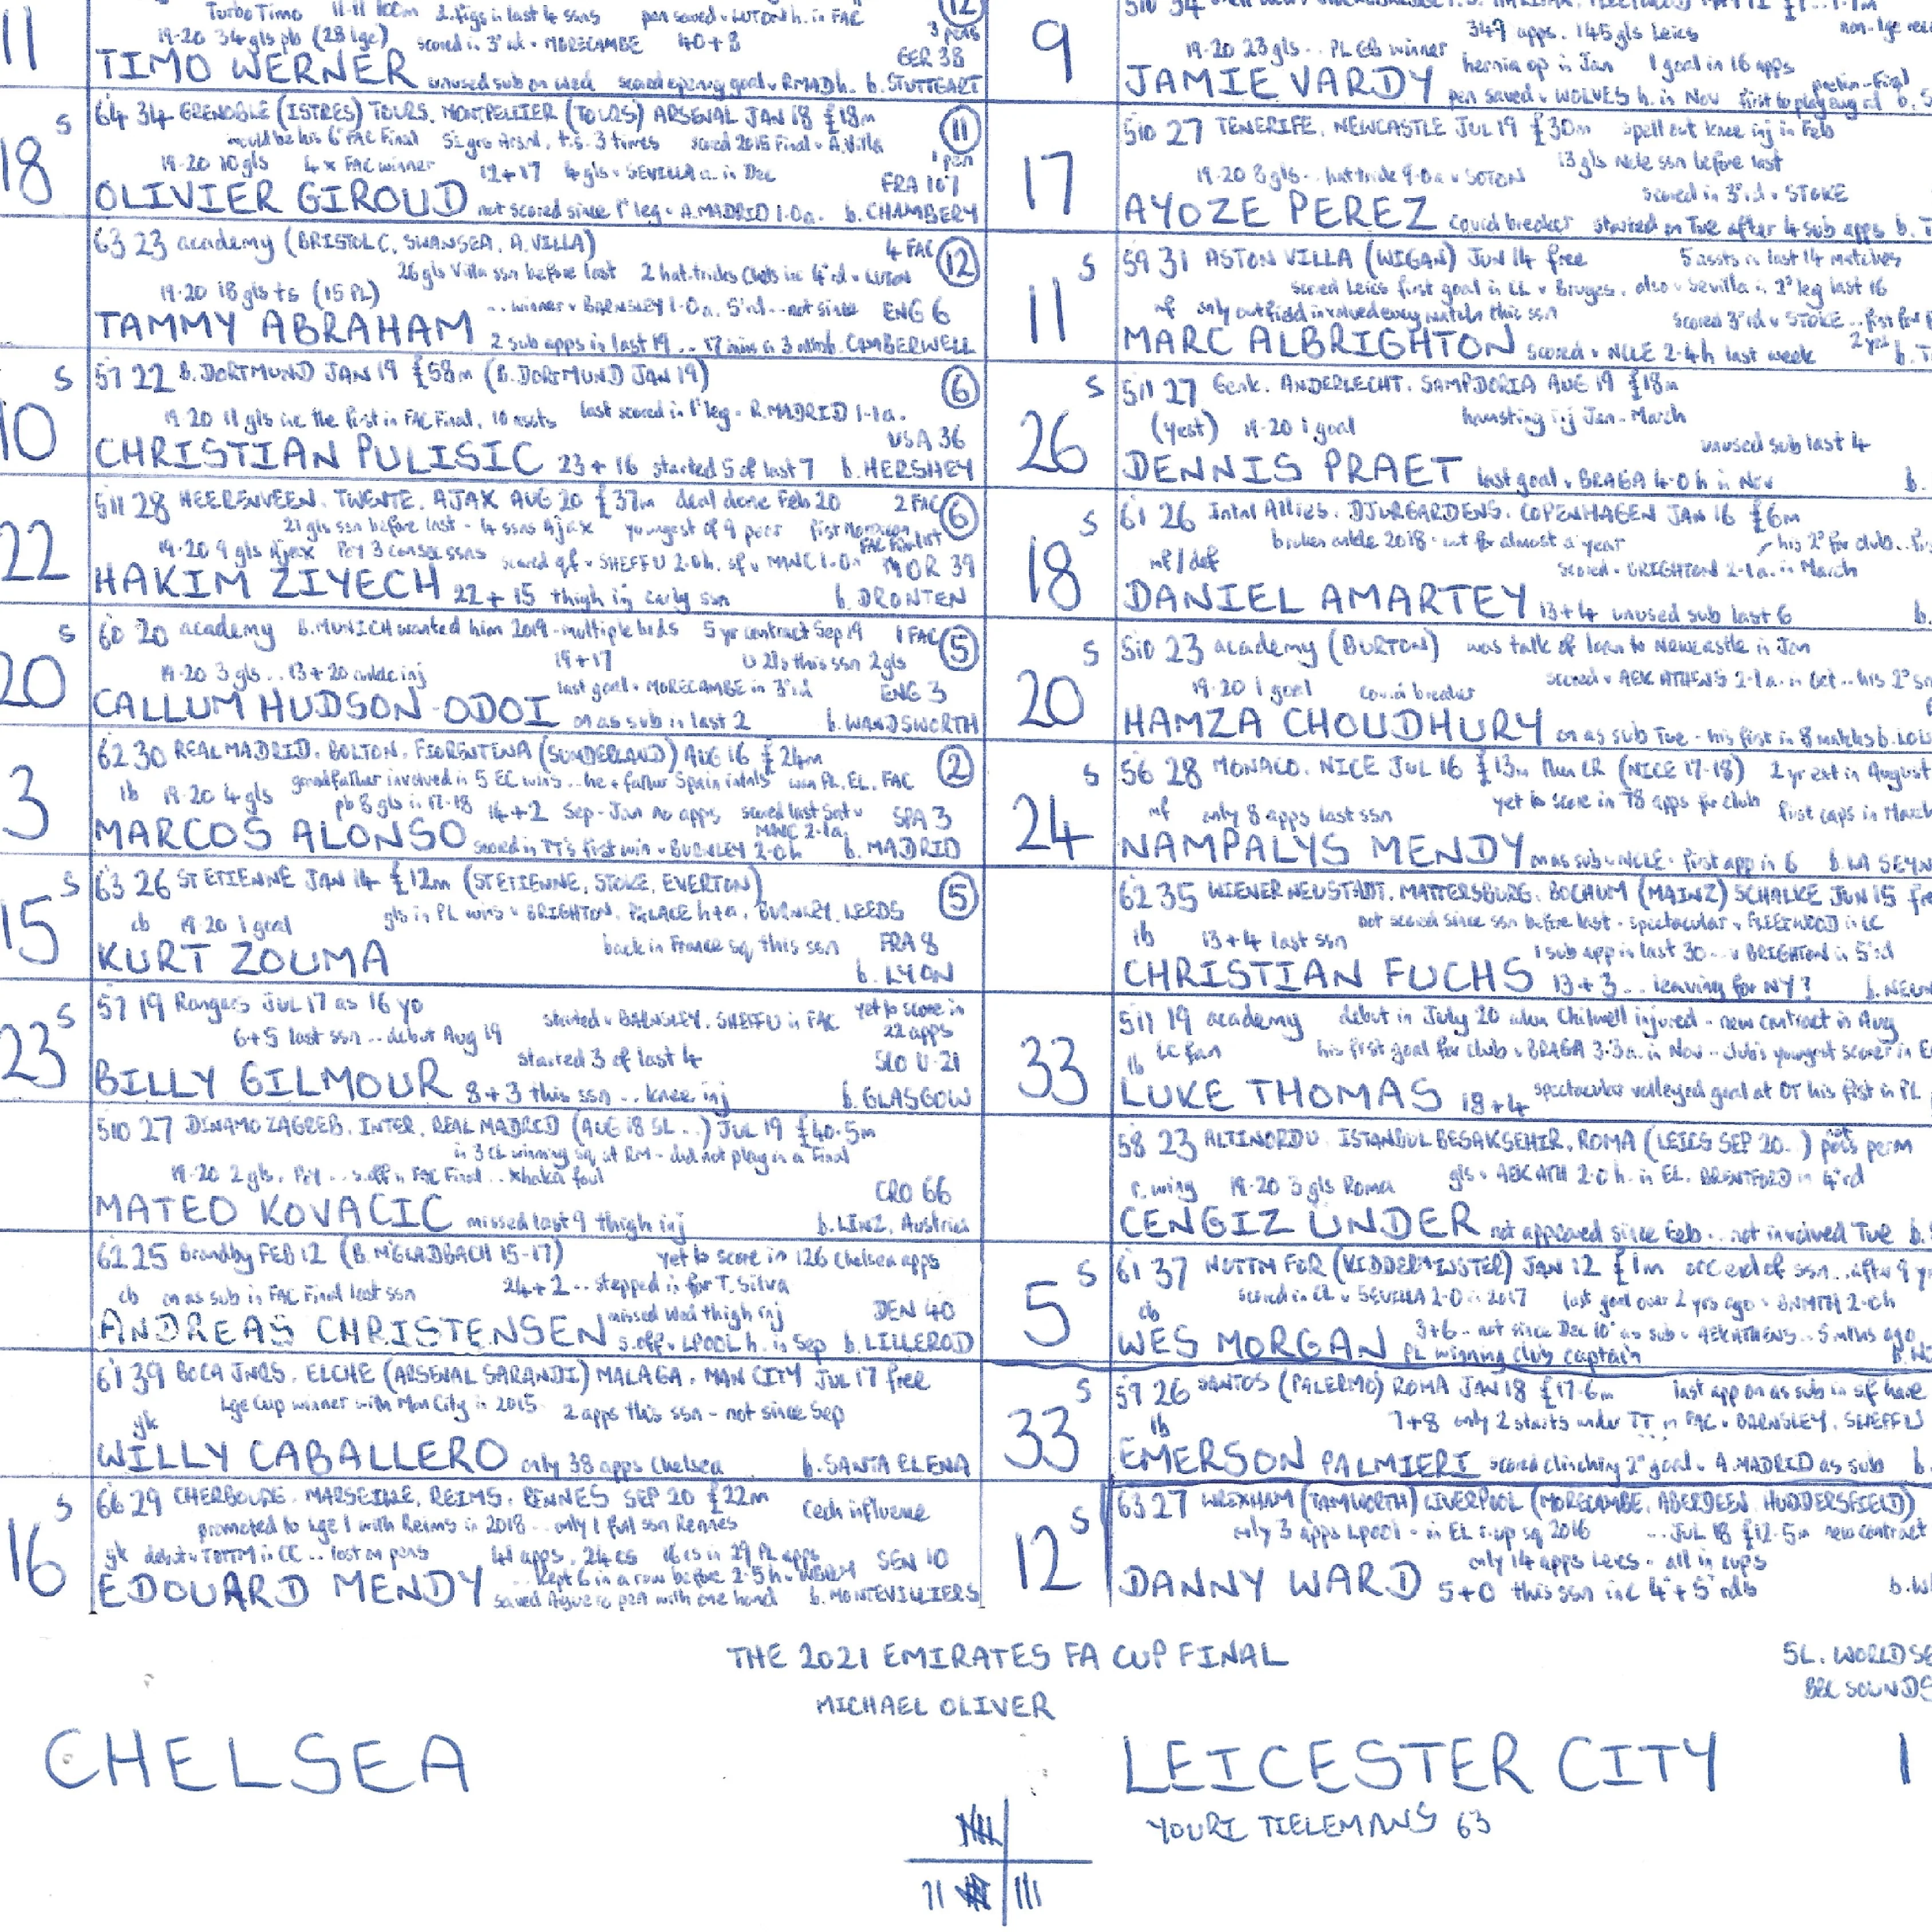 11
Turbo Timo 11-11 100m 2.figs in last 4 ssns pen saved v LUTON h. in FAC
12
3 pens
19-20 34 gls pb (28 lge) scored in 3rd v MORECAMBE 40+8
GER 38
TIMO WERNER unused sub on Wed scored opening goal v RMAD h. b. STUTTGART
18 S
64 34 GRENOBLE (ISTRES) TOURS. MONTPELLIER (TOURS) ARSENAL JAN 18 £18m
11
1 pen
would be his 6th FAC Final scored 2015 Final v A.Villa
19-20 10 gls 4 x FAC winner 12+17 4 gls v SEVILLA a. in Dec
FRA 107
OLIVIER GIROUD not scored since 1st leg v A.MADRID 1-0 a. b. CHAMBERY
63 23 academy (BRISTOL C, SWANSEA, A.VILLA)
4 FAC 12
26 gls Villa ssn before last 2 hat-tricks Chels inc 4th rd v LUTON
19-20 18 gls ts (15 PL)
... winner v BARNSLEY 1-0 a. 5th rd... not since ENG 6
TAMMY ABRAHAM 2 sub apps in last 19 b. CAMBERWELL
10 S
57 22 B.DORTMUND JAN 19 £58m (B.DORTMUND JAN 19)
6
19-20 11 gls inc the first in FAC Final, 10 assts last scored in 1st leg v R.MADRID 1-1 a.
USA 36
CHRISTIAN PULISIC 23+16 started 5 of last 7 b. HERSHEY
22
511 28 HEERENVEEN. TWENTE. AJAX AUG 20 £37m deal done Feb 20 2 FAC
6
21 gls ssn before last - 4 ssns Ajax youngest of 9 first Moroccan FAC Finalist
19-20 9 gls Ajax scored qf v SHEFFU 2-0 h. sf v MANC 1-0 n MOR 39
HAKIM ZIYECH 22+15 thigh inj early ssn b. DRONTEN
20 S
60 20 academy B.MUNICH wanted him 2019 - multiple bids 5 yr contract Sep 19 1 FAC
5
19+17 U21s this ssn 2 gls
19-20 3 gls... 13+20 ankle inj
last goal v MORECAMBE in 3rd rd ENG 3
CALLUM HUDSON-ODOI on as sub in last 2 b. WANDSWORTH
3
62 30 REAL MADRID. BOLTON. FIORENTINA (SUNDERLAND) AUG 16 £24m
2
grandfather involved in 5 EC wins... he + father Spain intnls won PL. EL. FAC
lb 19-20 4 gls pb 8 gls in 17-18 14+2 Sep-Jan no apps scored last Sat v MANC 2-1 a. SPA 3
MARCOS ALONSO scored in TT's first win v BURNLEY 2-0 h b. MADRID
15 S
63 26 ST ETIENNE JAN 14 £12m (ST ETIENNE, STOKE, EVERTON)
5
cb 19-20 1 goal gls in PL wins v BRIGHTON, PALACE h+a, BURNLEY. LEEDS
back in France sq this ssn FRA 8
KURT ZOUMA b. LYON
23 S
57 19 Rangers JUL 17 as 16 yo
yet to score in 22 apps
6+5 last ssn... debut Aug 19 started v BARNSLEY. SHEFFU in FAC
started 3 of last 4 SCO U-21
BILLY GILMOUR 8+3 this ssn... knee inj b. GLASGOW
510 27 DINAMO ZAGREB. INTER. REAL MADRID (AUG 18 SL..) JUL 19 £40.5m
in 3 CL winning sq at RM - did not play in a Final
19-20 2 gls. s.off v FAC Final... Xhaka foul
CRO 66
MATEO KOVACIC missed last 9 thigh inj b. LINZ, Austria
62 25 Brondby FEB 12 (B.M'GLADBACH 15-17) yet to score in 126 Chelsea apps
cb on as sub in FAC Final last ssn 24+2... stepped in for T.Silva
missed Wed thigh inj DEN 40
ANDREAS CHRISTENSEN s.off v LPOOL h. in Sep b. LILLEROD
61 39 BOCA JNRS. ELCHE (ARSENAL SARANDI) MALAGA. MAN CITY JUL 17 free
gk Lge Cup winner with Man City in 2015 2 apps this ssn - not since Sep
WILLY CABALLERO only 38 apps Chelsea b. SANTA ELENA
16 S
66 29 CHERBOURG. MARSEILLE. REIMS. RENNES SEP 20 £22m Cech influence
promoted to Lge 1 with Reims in 2018... only 1 full ssn Rennes
gk debut v TOTTM in CC.. lost on pens 41 apps. 24 cs 16 cs in 29 PL apps SEN 10
... kept 6 in a row before 2-5 h v WBROM
EDOUARD MENDY saved Aguero pen with one hand b. MONTIVILLIERS
9
349 apps. 145 gls Leics
19-20 23 gls.. PL GB winner hernia op in Jan 1 goal in 16 apps
JAMIE VARDY pen saved v WOLVES h. in Nov
17
510 27 TENERIFE. NEWCASTLE JUL 19 £30m spell out knee inj in Feb
13 gls Ncle ssn before last
19-20 8 gls.. hat-trick 9-0 a v SOTON
scored in 3rd rd v STOKE
AYOZE PEREZ covid breaker started on Tue after 4 sub apps
11 S
59 31 ASTON VILLA (WIGAN) JUN 14 free 5 assts in last 14 matches
scored Leics first goal in CL v Bruges. also v Sevilla in 2nd leg last 16
mf only outfield involved every match this ssn
scored 3rd rd v STOKE
MARC ALBRIGHTON scored v NCLE 2-4 h last week
26 S
511 27 Genk. ANDERLECHT. SAMPDORIA AUG 19 £18m
(yest) 19-20 1 goal hamstring inj Jan-March
unused sub last 4
DENNIS PRAET last goal v BRAGA 4-0 h in Nov
18 S
61 26 Intnl Allies. DJURGARDENS. COPENHAGEN JAN 16 £6m
broken ankle 2018 - out for almost a year his 2nd for club
mf/def scored v BRIGHTON 2-1 a. in March
DANIEL AMARTEY 13+4 unused sub last 6
20 S
510 23 academy (BURTON) was talk of loan to Newcastle in Jan
19-20 1 goal covid breaker scored v AEK ATHENS 2-1 a. in Oct.. his 2nd
HAMZA CHOUDHURY on as sub Tue - his first in 8 matches
24 S
56 28 MONACO. NICE JUL 16 £13m then LR (NICE 17-18) 2 yr ext in August
mf only 8 apps last ssn yet to score in 78 apps for club first caps in March
NAMPALYS MENDY on as sub v NCLE - first app in 6 b. LA SEYN
62 35 WIENER NEUSTADT. MATTERSBURG. BOCHUM (MAINZ) SCHALKE JUN 15
not scored since ssn before last - spectacular v FLEETWOOD in LC
lb 13+4 last ssn 1 sub app in last 30... v BRIGHTON in 5th rd
CHRISTIAN FUCHS 13+3... leaving for NY? b. NEUN
33
511 19 academy debut in July 20 when Chilwell injured - new contract in Aug
lb LC fan his first goal for club v BRAGA 3-3 a. in Nov - club's youngest scorer in
LUKE THOMAS 18+4 spectacular volleyed goal at OT his first in PL
58 23 ALTINORDU. ISTANBUL BESAKSEHIR. ROMA (LEICS SEP 20..) not perm
r.wing 19-20 3 gls Roma gls v AEK ATH 2-0 h. in EL. BRENTFORD in 4th rd
CENGIZ UNDER not appeared since Feb... not involved Tue
5 S
61 37 NOTTM FOR (KIDDERMINSTER) JAN 12 £1m end of ssn... after 9
scored in CL v SEVILLA 2-0 in 2017 last goal over 2 yrs ago v BNMTH 2-0 h
cb 3+6 - not since Dec 10 as sub v AEK ATHENS.. 5 mths ago
WES MORGAN PL winning club captain
33 S
59 26 SANTOS (PALERMO) ROMA JAN 18 £17.6m last app on as sub in sf here
lb 7+8 only 2 starts under TT in FAC v BARNSLEY. SHEFFU
EMERSON PALMIERI scored clinching 2nd goal v A.MADRID as sub
12 S
63 27 WREXHAM (TAMWORTH) LIVERPOOL (MORECAMBE. ABERDEEN. HUDDERSFIELD)
only 3 apps Lpool - in EL r-up sq 2016 ... JUL 18 £12.5m new contract
only 14 apps Leics - all in cups
DANNY WARD 5+0 this ssn inc 4th+5th rds
THE 2021 EMIRATES FA CUP FINAL
5L. WORLD SE
MICHAEL OLIVER
BBC SOUNDS
CHELSEA
LEICESTER CITY 1
YOURI TIELEMANS 63